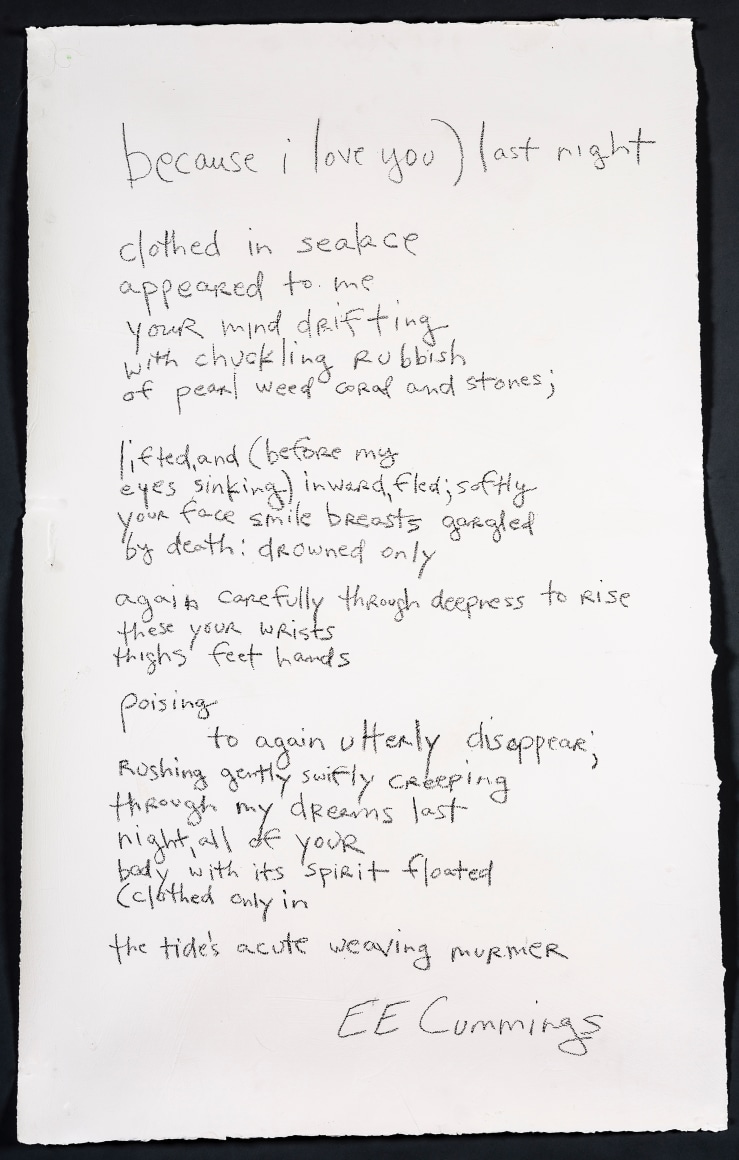 because i love you) last night
clothed in sealace
appeared to me
your mind drifting
with chuckling rubbish
of pearl weed coral and stones;
lifted,and (before my
eyes sinking) inward,fled; softly
your face smile breasts gargled
by death: drowned only
again carefully through deepness to rise
these your wrists
thighs feet hands
poising
to again utterly disappear;
rushing gently swiftly creeping
through my dreams last
night,all of your
body with its spirit floated
(clothed only in
the tide's acute weaving murmer
EE Cummings